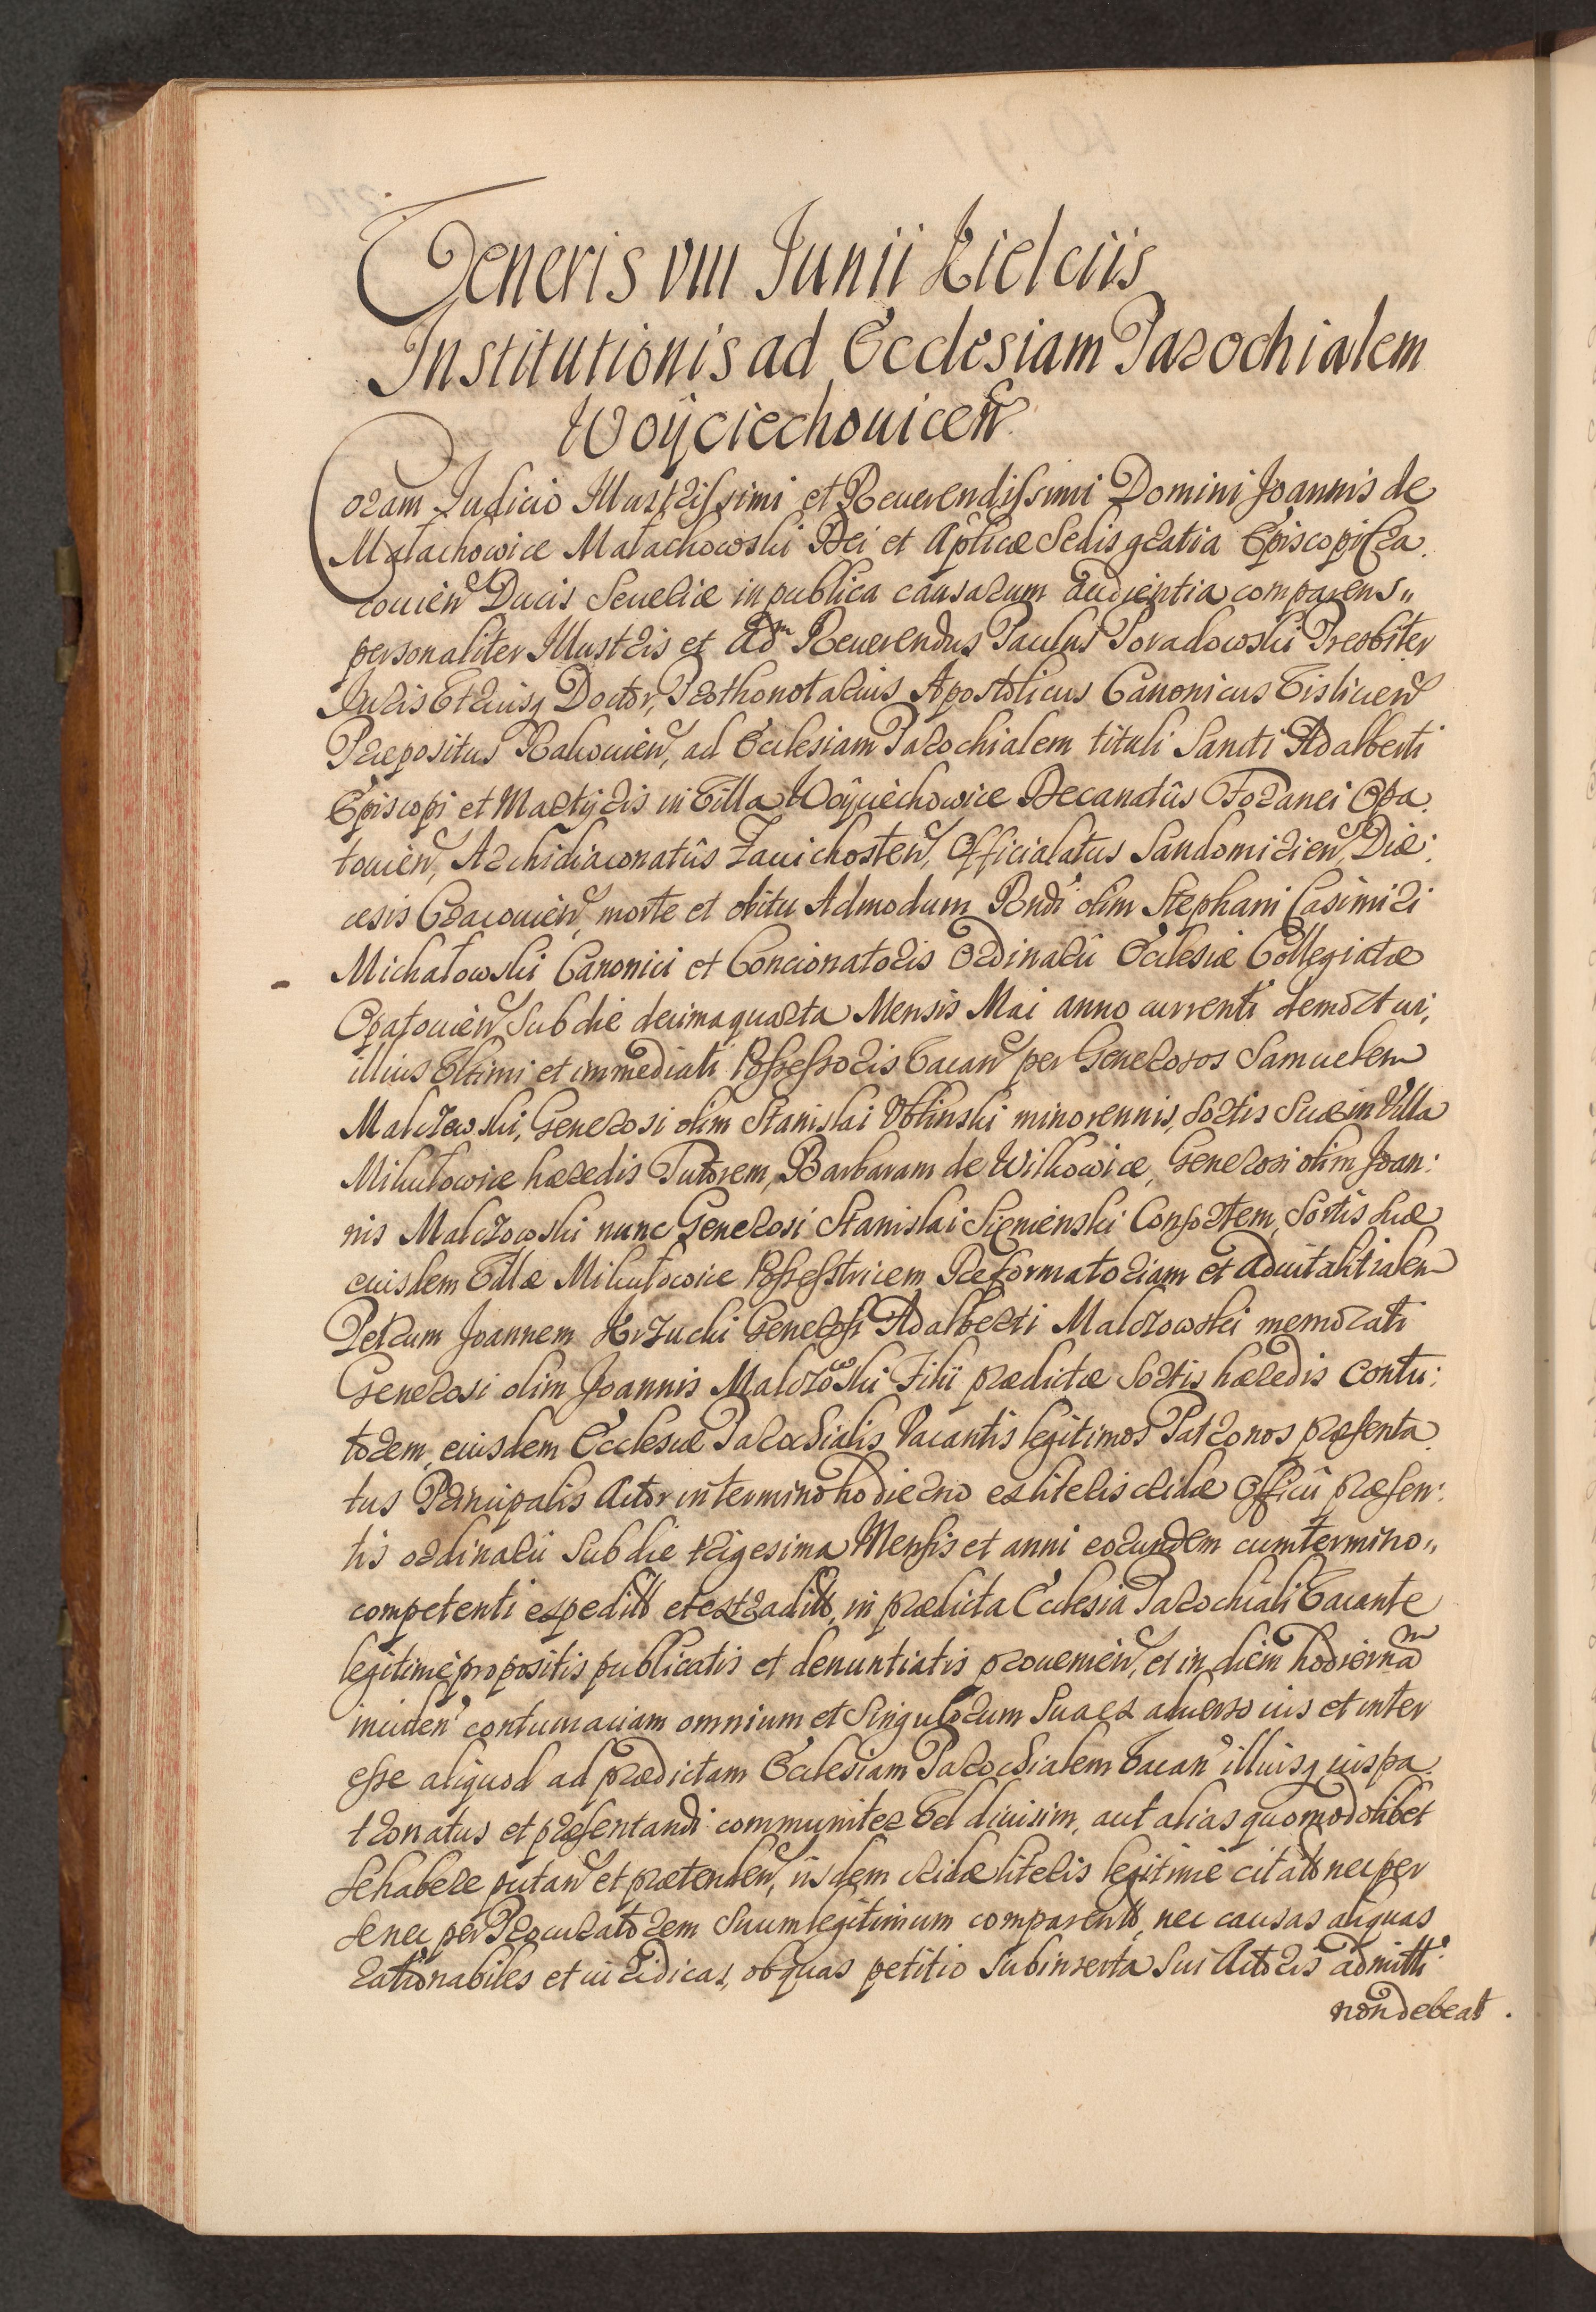 Veneris VIII Junii Kielciis
Institutionis ad Ecclesiam Parochialem
Woÿciechouiceñ.
Coram Judicio Illustrissimi et Reuerendissimi Domini Joannis de
Małachowice Małachowski Dei et Aplicæ Sedis gratia Episcopi Cra
couieñ Ducis Seueriæ in publica causarum audientia comparens„
personaliter Illustris et Adm Reuerendus Paulus Poradowski Presbiter
Juris Vtriusq Doctor, Prothonotarius Apostolicus Canonicus Visliceñ
Præpositus Rakouieñ, ad Ecclesiam Parochialem tituli Sancti Adalberti
Episcopi et Martyris in Villa Woÿciechowice Decanatûs Foranei Opa
touieñ, Archidiaconatûs Zauichosteñ, Officialatus Sandomirieñ, Diæ:
cesis Cracouieñ, morte et obitu Admodum Rndi olim Stephani Casimiri
Michałowski Canonici et Concionatoris Ordinarii Ecclesiæ Collegiatæ
Opatouieñ Sub die decima quarta Mensis Mai anno currenti demortui,
illius Vltimi et immediati Possessoris Vacañ per Generosos Samuelem
Malczewski, Generosi olim Stanislai Vblinski minorennis, Sortis Suæ in Villa
Mikułowice hæredis Tutorem, Barbaram de Wilkowice, Generosi olim Joan:
nis Malczowski nunc Generosi Stanislai Siemienski Consortem, Sortis Suæ
eiusdem Villæ Mikułowice Possestricem Reformatoriam et Aduitalitialem
Petrum Joannem Krzucki Generosi Adalberti Malczowski memorati
Generosi olim Joannis Malczowski Filii prædictæ Sortis hæredis Contu:
torem, eiusdem Ecclesiæ Parochialis Vacantis legitimos Patronos præsenta
tus Principalis Actor in termino hodierno ex literis cridæ Officii præsen:
tis ordinarii Sub die trigesima Mensis et anni eorundem cum termino„
competenti expeditis et extraditis, in prædicta Ecclesia Parochiali Vacante
legitimè propositis publicatis et denuntiatis prouenieñ, et in diem hodiernam
inciden contumaciam omnium et Singulorum Sua ex aduerso ius et inter
esse aliquod ad prædictam Ecclesiam Parochialem Vacan illiusq iuspa
tronatus et præsentandi communiter Vel diuisim, aut alias quomodolibet
Se habere putañ et prætendeñ, iisdem cridæ literis legitimè citatis nec per
se nec per Procuratorem Suum legitimum comparentis, nec causas aliquas
rationabiles et iuridicas, ob quas petitio Subinserta Sui Actoris admitti
non debeat.